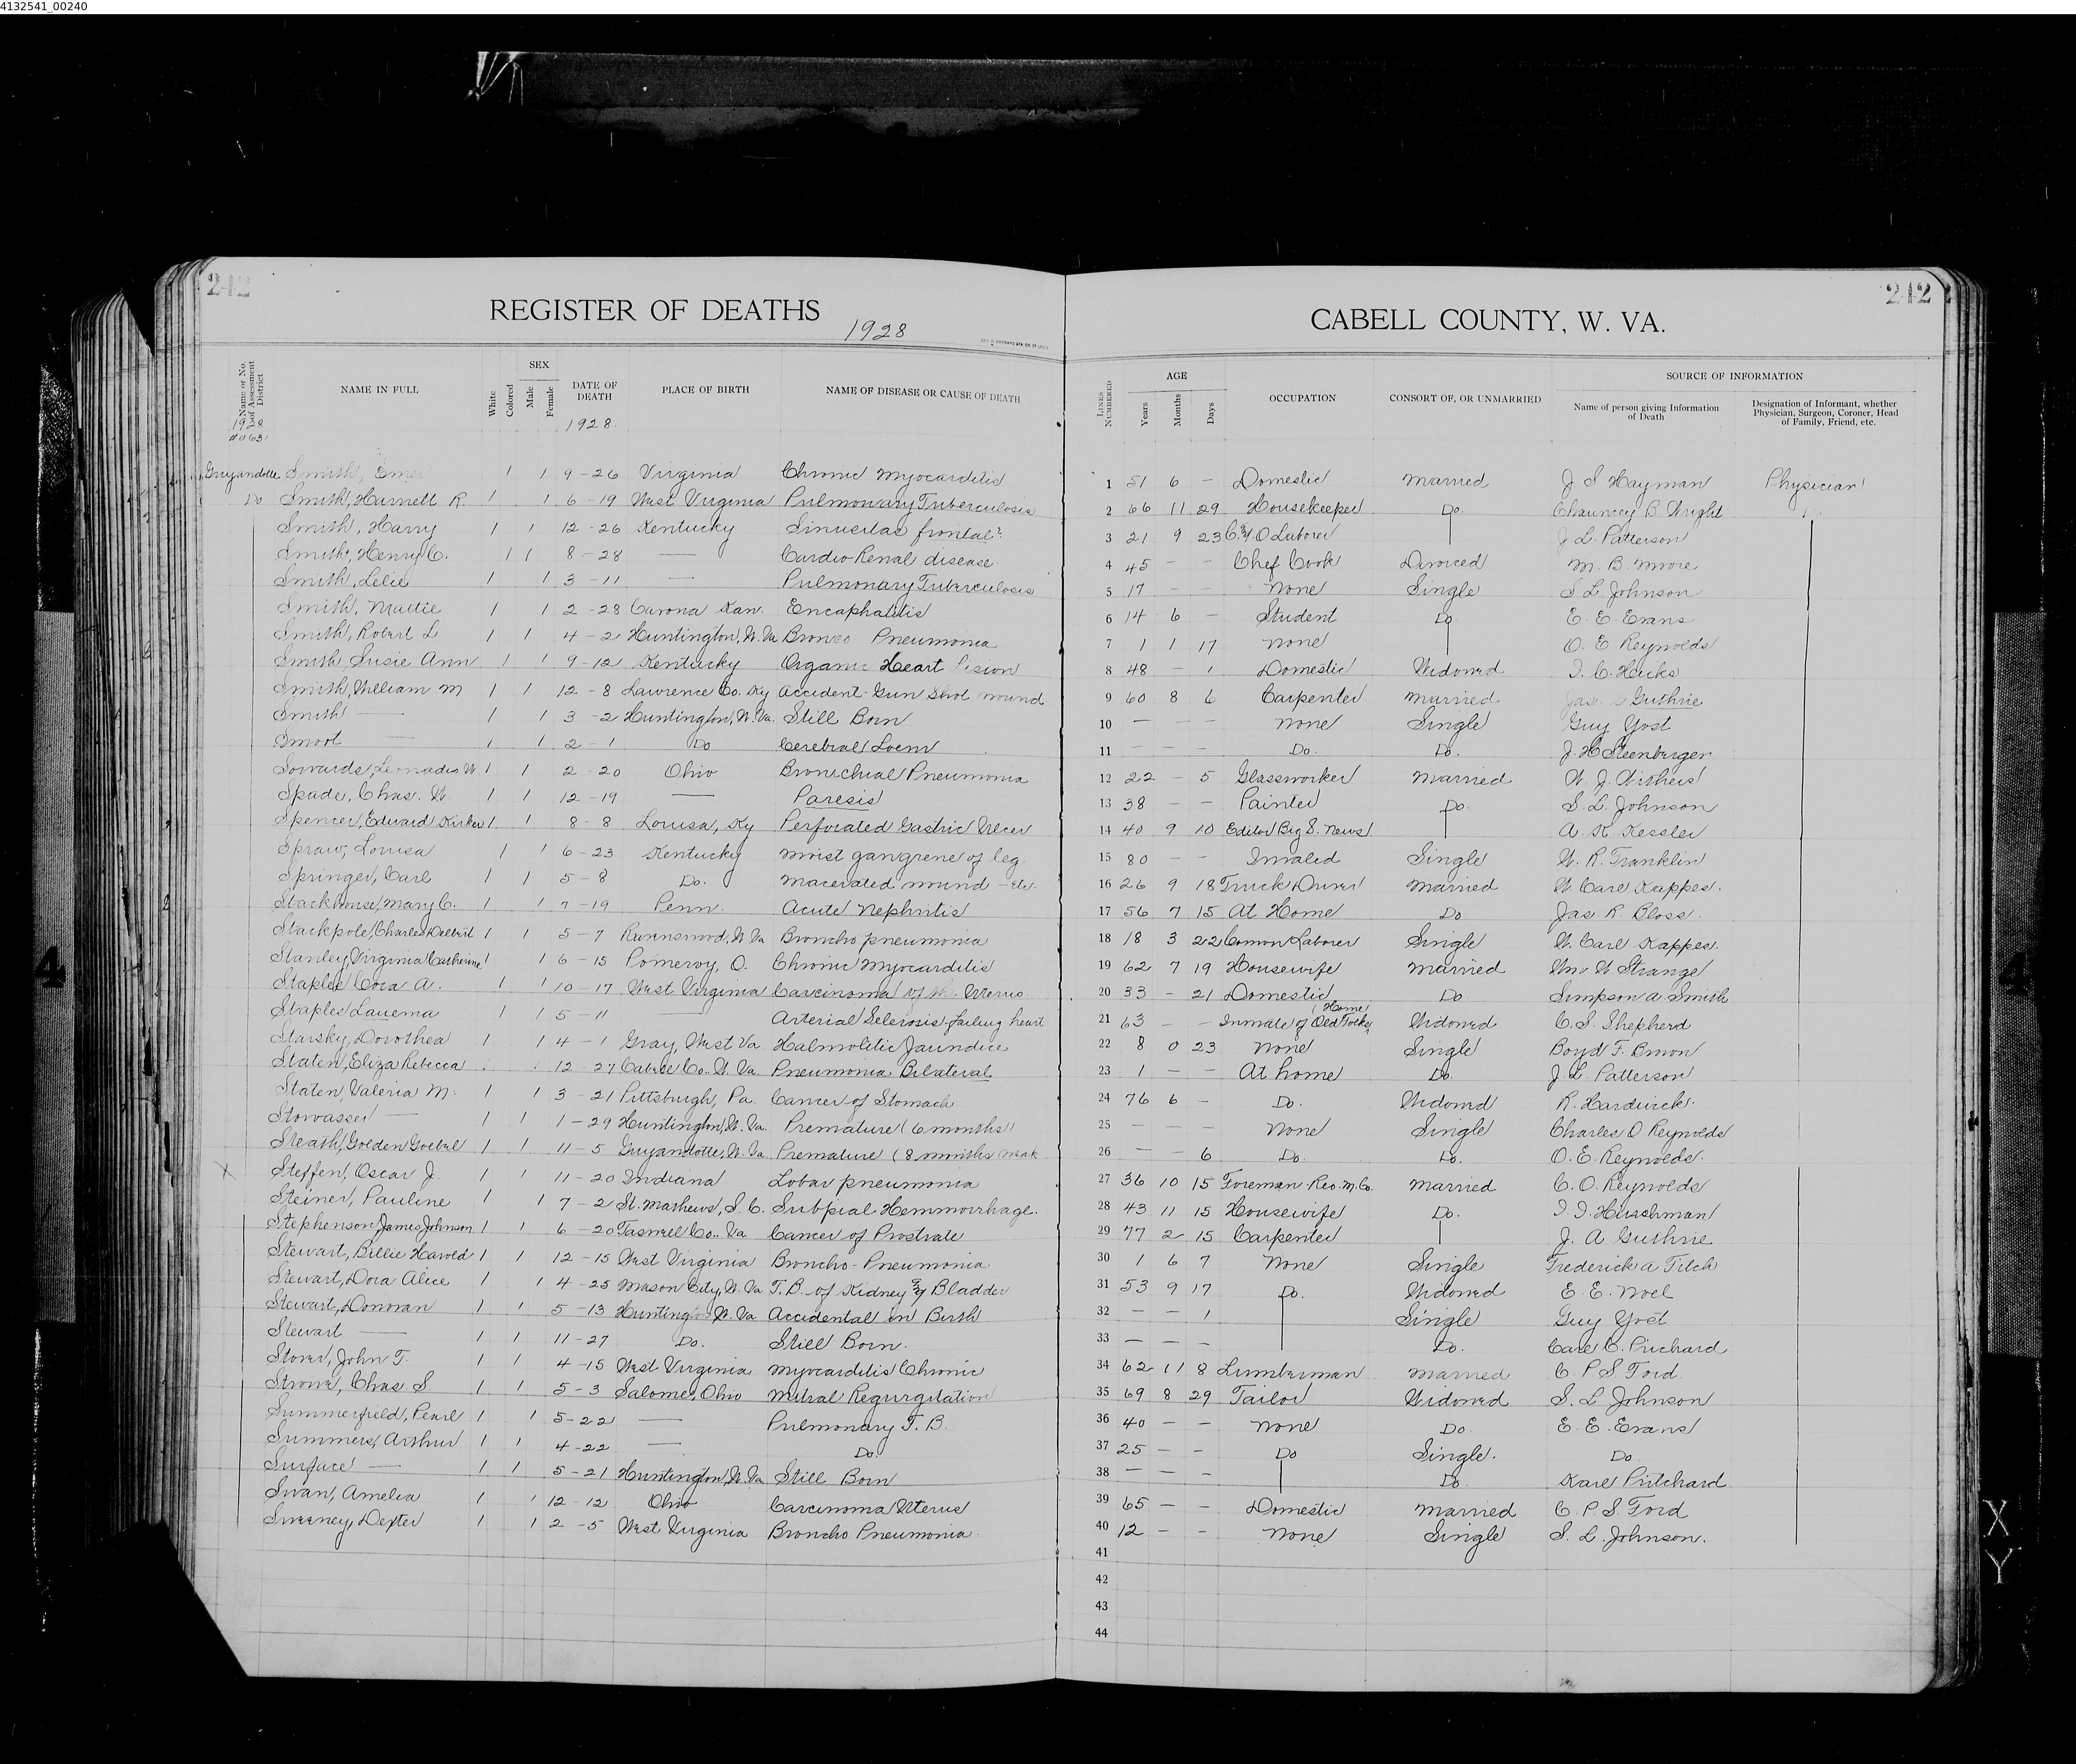 4132541_00240
242
REGISTER OF DEATHS
1928
CABELL COUNTY, W. VA.
242
Name or No. of Assessment District
NAME IN FULL
White
Colored
SEX
Male
Female
DATE OF DEATH
PLACE OF BIRTH
NAME OF DISEASE OR CAUSE OF DEATH
LINES NUMBERED
AGE
Years
Months
Days
OCCUPATION
CONSORT OF, OR UNMARRIED
SOURCE OF INFORMATION
Name of person giving Information of Death
Designation of Informant, whether Physician, Surgeon, Coroner, Head of Family, Friend, etc.
1928
1928.
Guyandotte Smith, 1 1 9-26 Virginia Chronic Myocarditis 1 51 6 - Domestic Married J S Hayman Physician
Do Smith, Harnett R. 1 1 6-19 West Virginia Pulmonary Tuberculosis 2 66 11 29 Housekeeper Do. Chauncey B Wright
Smith, Harry 1 1 12-26 Kentucky Sinusitas frontal 3 21 9 23 C. & O Laborer J L. Patterson
Smith, Henry C. 1 1 8-28 — Cardio Renal disease 4 45 - - Chef Cook Divorced M. B. Moore
Smith, Lelie 1 1 3-11 — Pulmonary Tuberculosis 5 17 - - None Single S L. Johnson
Smith, Mattie 1 1 2-28 Carona Kan. Encaphalitis 6 14 6 - Student Do E. E. Evans
Smith, Robert L 1 1 4-2 Huntington, W. Va Bronco Pneumonia 7 1 1 17 None O. E Reynolds
Smith Susie Ann 1 1 9-12 Kentucky Organic Heart lision 8 48 - 1 Domestic Widowed I. C. Hicks
Smith, William M 1 1 12-8 Lawrence Co. Ky Accident-Gun Shot wound 9 60 8 6 Carpenter Married Jas Guthrie
Smith — 1 1 3-2 Huntington, W. Va. Still Born 10 — — — None Single Guy Yost
Smoot — 1 1 2-1 Do Cerebral 11 — — — Do. Do. J. H Steenberger
Sowards, Leonadis W 1 1 2-20 Ohio Bronchial Pneumonia 12 22 - 5 Glassworker Married W. J.
Spade, Chas. W. 1 1 12-19 — Paresis 13 38 - - Painter Do. S. L. Johnson
Spencer, Edward Kirker 1 1 8-8 Louisa, Ky Perforated Gastric Ulcer 14 40 9 10 Editor Big S. News A. K. Kessler
Spraw, Louisa 1 1 6-23 Kentucky Moist gangrene of leg. 15 80 - - Invaled Single W. R. Franklin
Springer, Carl 1 1 5-8 Do. Macerated wound - etc. 16 26 9 18 Truck Driver Married W. Carl Kappes.
Stackhouse, Mary C. 1 1 7-19 Penn. Acute Nephritis 17 56 7 15 At Home Do Jas. R. Bloss.
Stackpole, Charles Delbert 1 1 5-7 Ravenswood, W Va Broncho pneumonia 18 18 3 22 Common Laborer Single W. Carl Kappes.
Stanley, Virginia Catherine 1 1 6-15 Pomeroy, O. Chronic Myocarditis 19 62 7 19 Housewife Married Wm W Strange
Staples Cora A. 1 1 10-17 West Virginia Carcinoma of the Uterus 20 33 - 21 Domestic Do Simpson A. Smith
Staples Lauema 1 1 5-11 — Arterial Sclerosis-failing heart 21 63 - - Inmate of Old Folks (Home) Widowed C. S. Shepherd
Starsky, Dorothea 1 1 4-1 Gray, West Va Halmolitic Jaundice 22 8 0 23 None Single Boyd F. Brown
Staten, Eliza Rebecca 12-27 Cabell Co. W. Va. Pneumonia Bilateral 23 1 - - At home Do. J. L. Patterson
Staten, Valeria M. 1 1 3-21 Pittsburgh, Pa. Cancer of Stomach 24 76 6 - Do. Widowed R. Hardwick.
Stowasser — 1 1 1-29 Huntington, W. Va. Premature (6 months) 25 — — — None Single Charles O Reynolds
Steath, Golden Goebel 1 1 11-5 Guyandotte, W. Va. Premature (8 months weak 26 — - 6 Do. Do. O. E. Reynolds.
X Steffen, Oscar J. 1 1 11-20 Indiana Lobar pneumonia 27 36 10 15 Foreman Reo. M. Co. Married C. O. Reynolds
Steiner, Pauline 1 1 7-2 St. Mathews, S. C. Subpial Hemmorrhage. 28 43 11 15 Housewife Do. I. I. Hirschman
Stephenson James Johnson 1 1 6-20 Taswell Co. Va Cancer of Prostrate 29 77 2 15 Carpenter J. A Guthrie
Stewart, Billie Harold 1 1 12-15 West Virginia Broncho-Pneumonia 30 1 6 7 None Single Frederick A Fitch
Stewart, Dora Alice 1 1 4-25 Mason City, W. Va T.B. of Kidney & Bladder 31 53 9 17 Do. Widowed E. E. Noel
Stewart, Donovan 1 1 5-13 Huntington W. Va. Accidental in Birth 32 — - 1 Single Guy Yost
Stewart — 1 1 11-27 Do. Still Born. 33 — — — Do. Carl C. Prichard
Stover, John T. 1 1 4-15 West Virginia Myocarditis Chronic 34 62 11 8 Lumberman Married C. P. S. Ford
Strow, Chas. S 1 1 5-3 Salome, Ohio Mitral Regurgitation 35 69 8 29 Tailor Widowed S. L Johnson
Summerfield, Pearl 1 1 5-22 — Pulmonary T. B. 36 40 - - None Do. E. E. Evans
Summers, Arthur 1 1 4-22 — Do. 37 25 - - Do Single. Do
Surface — 1 1 5-21 Huntington, W. Va. Still Born 38 — - - Do Karl Pritchard
Swan, Amelia 1 1 12-12 Ohio Carcinoma Uterus 39 65 - - Domestic Married C. P. S. Ford
Sweeney, Dexter 1 1 2-5 West Virginia Broncho Pneumonia 40 12 - - None Single S. L. Johnson.
41
42
43
44
4
4
X
Y